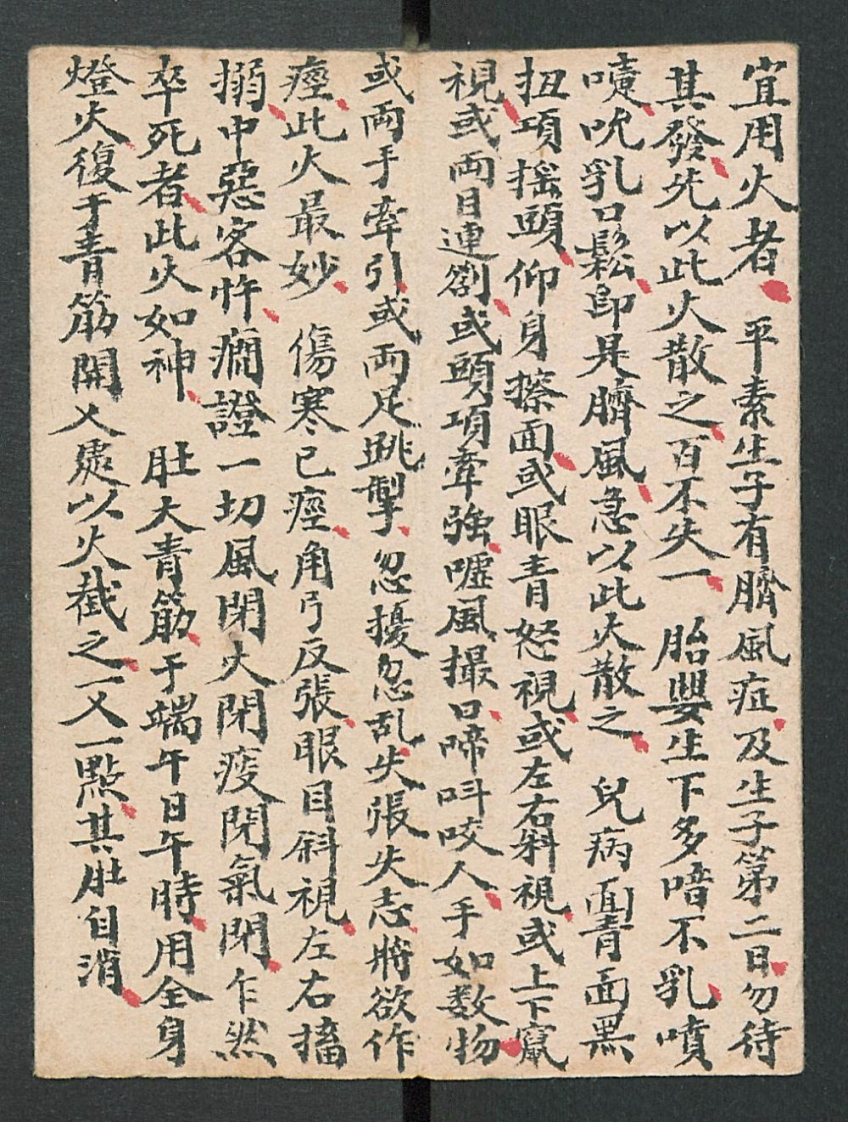 宜用火者 平素生子有臍風症及生子第二日勿待
其發先以此火散之百不失一 胎嬰生下多喑不乳噴
嚏吮乳口鬆即是臍風急以此火散之 兒病面青面黑
扭項摇頭仰身擦面或眼青怒視或左右斜視或上下竄
視或両目連劄或頭項牽強嘘風撮口啼呌咬人手如数物
或両手牽引或両足跳掣忽擾忽乱失張失志將欲作
痙此火最妙 傷寒已痙角弓反張眼目斜視左右搐
搦中惡客忤癇證一切風閉火閉痰閉氣閉乍然
卒死者此火如神 肚大青筋于端午日午時用全身
燈火復于青筋開乂處以火截之一乂一點其肚自消